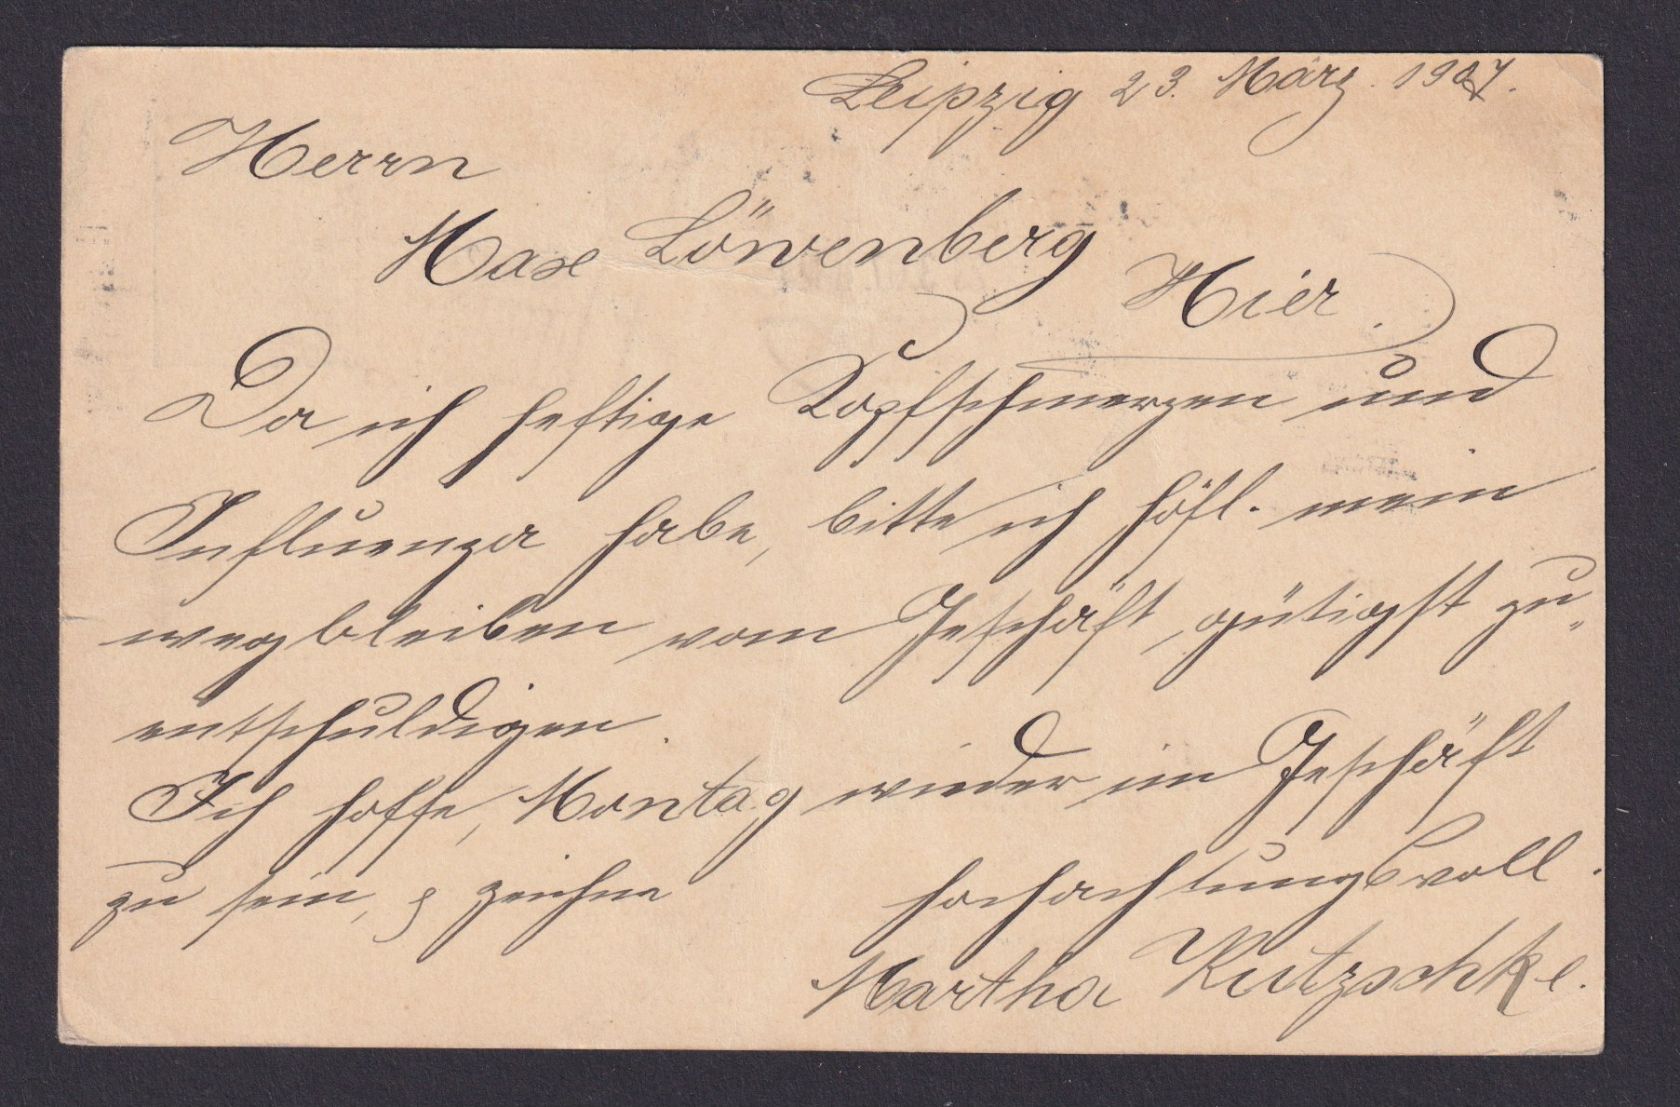 Leipzig 23. März. 1907.
Herrn
Max Löwenberg
Hier.
Da ich heftige Kopfschmerzen und
Influenza habe, bitte ich höfl. mein
wegbleiben vom Geschäft, gütigst zu
entschuldigen.
Ich hoffe, Montag wieder im Geschäft
zu sein, & zeichne
hochachtungsvoll.
Martha Kutzschke.